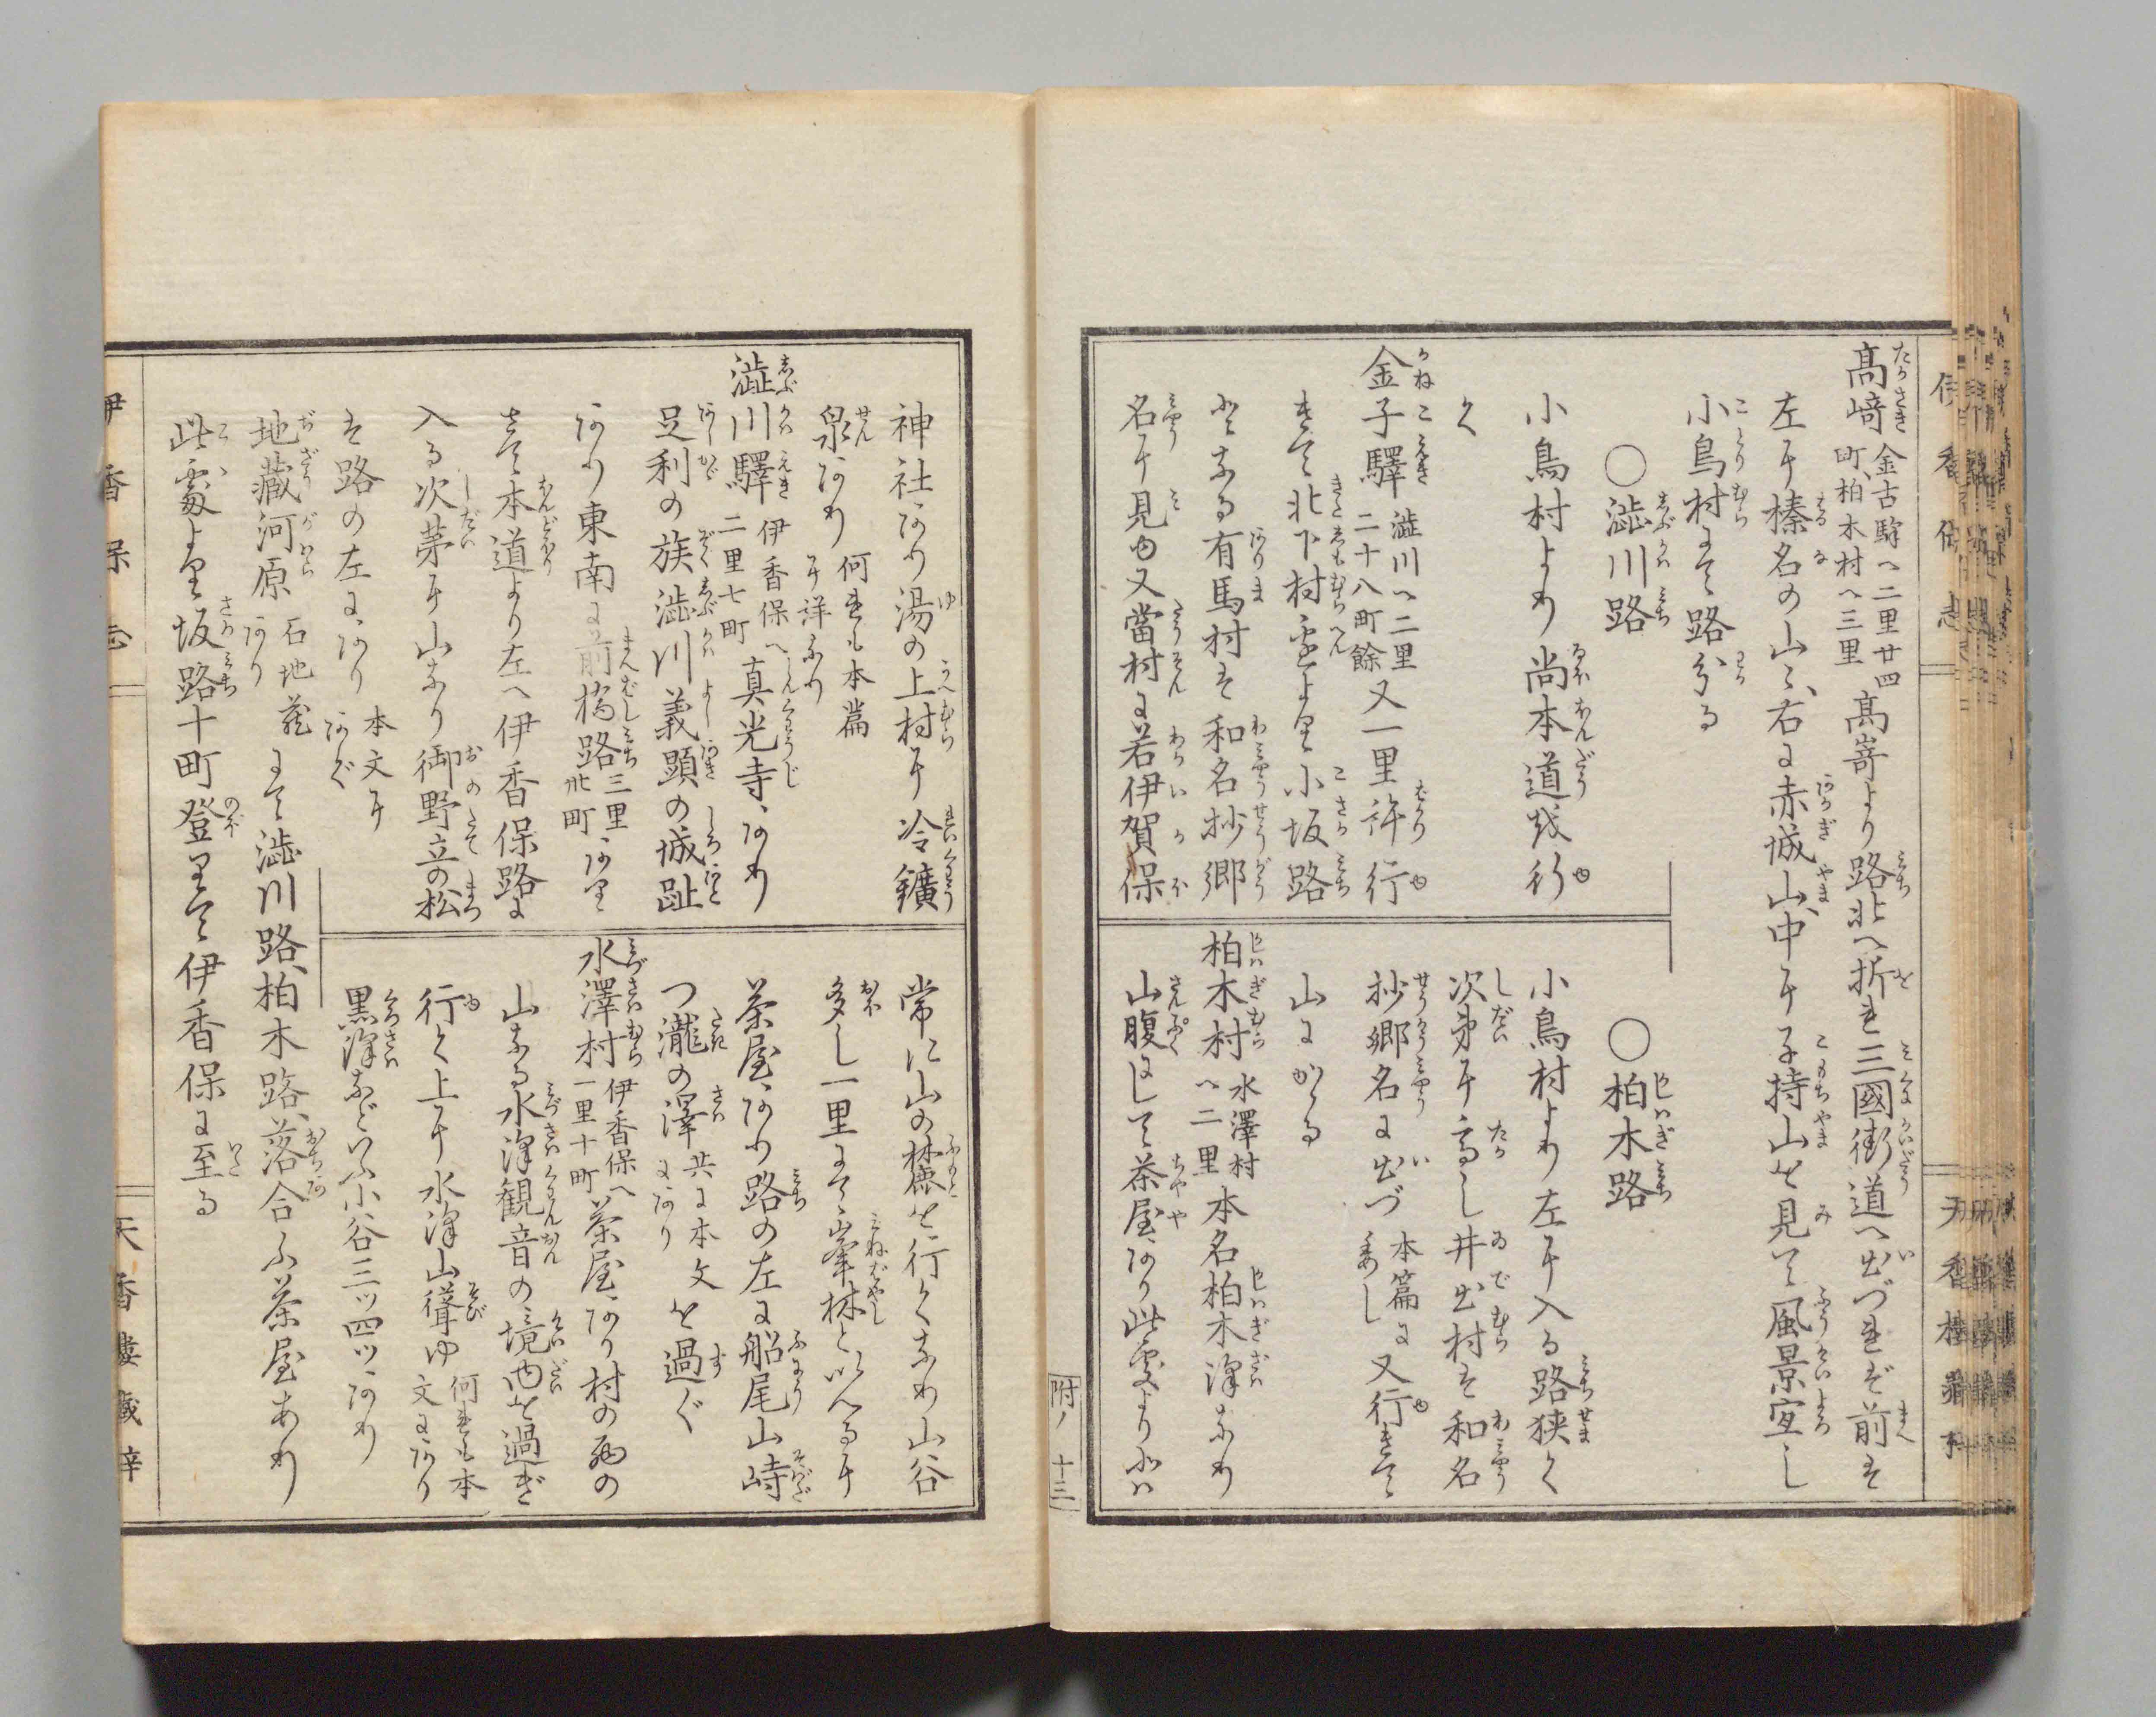 髙﨑 金古驛ヘ二里廿四町、柏木村ヘ三里 髙嵜より路北へ折れ三國街道へ出づれぞ前そ
左に榛名の山々、右に赤城山、中に子持山を見て風景宜し
小鳥村にて路分る
○澁川路
小鳥村より尚本道を行
く
金子驛 澁川ヘ二里二十八町餘 又一里許行
きて北下村邊より小坂路
となる有馬村は和名抄郷
名に見ゆ又當村に若伊賀保
○柏木路
小鳥村より左に入る路狭く
次第に高し井出村は和名
抄郷名に出づ 本篇に委し 又行きて
山にかゝる
柏木村 水澤村ヘ二里 本名柏木澤なり
山腹にして茶屋あり此處より
附ノ十三
神社あり湯の上村に冷鑛
泉あり 何れも本篇に詳なり
澁川驛 伊香保ヘ二里七町 真光寺あり
足利の族澁川義顕の城趾
あり東南に前橋路三里丗町あり
さて本道より左へ伊香保路に
入る次第に山なり御野立の松
は路の左にあり 本文にあぐ
常に山の麓を行くなり山谷
多し一里にて峯林といへるに
茶屋あり路の左に船尾山峙
つ瀧の澤 共に本文にあり を過ぐ
水澤村 伊香保ヘ一里十町 茶屋あり村の西の
山なる水澤観音の境内を過ぎ
行く上に水澤山聳ゆ 何れも本文にあり
黒澤など小谷三ツ四ツあり
地藏河原 石地蔵あり にて澁川路、柏木路、落合ふ茶屋あり
此處より坂路十町登りて伊香保に至る
伊香保志
天香樓藏梓